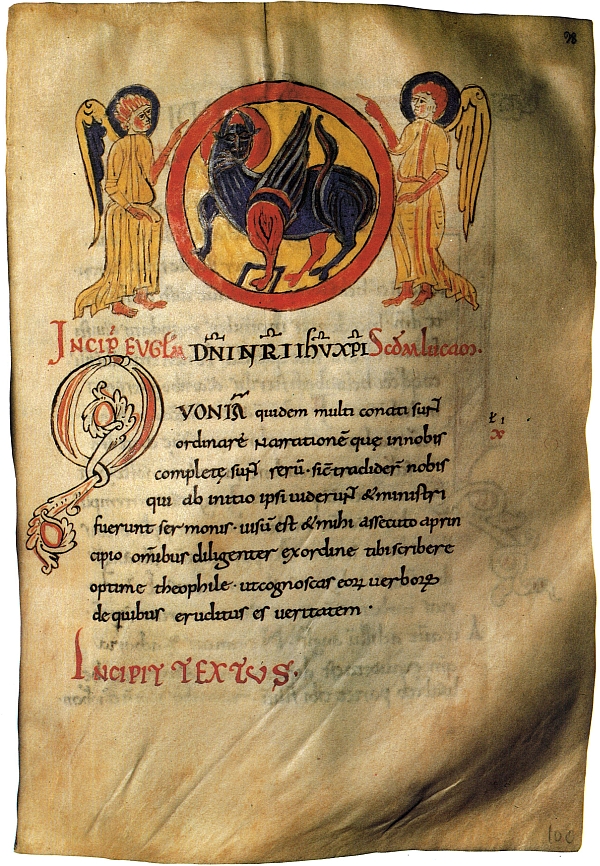 98
INCIP̄ EVGL̄M DN̄I NR̄I IHV̄ XP̄I SCDM̄ LUCAM.
QVONIĀ quidem multi conati sun̄t
ordinare narrationē quę innobis
completę sun̄t rerū · sic̄ tradider̄ nobis
qui ab initio ipsi viderun̄t & ministri
fuerunt sermonis · visū est & mihi assecuto aprin
cipio om̄ibus diligenter exordine tibi scribere
optime theophile · ut cognoscas eoꝝ verboꝝ
de quibus eruditus es veritatem ·
INCIPIT TEXTUS ·
100